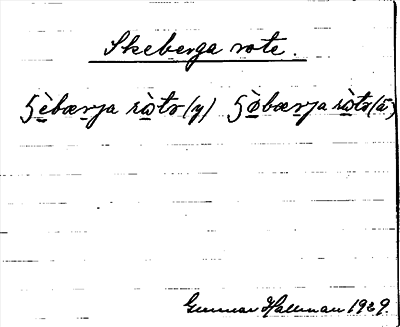 Skeberga rote.
ʃèbærja ròtr (y) ʃø̀bærja ròtr (ä)
Gunnar Hallman 1929.